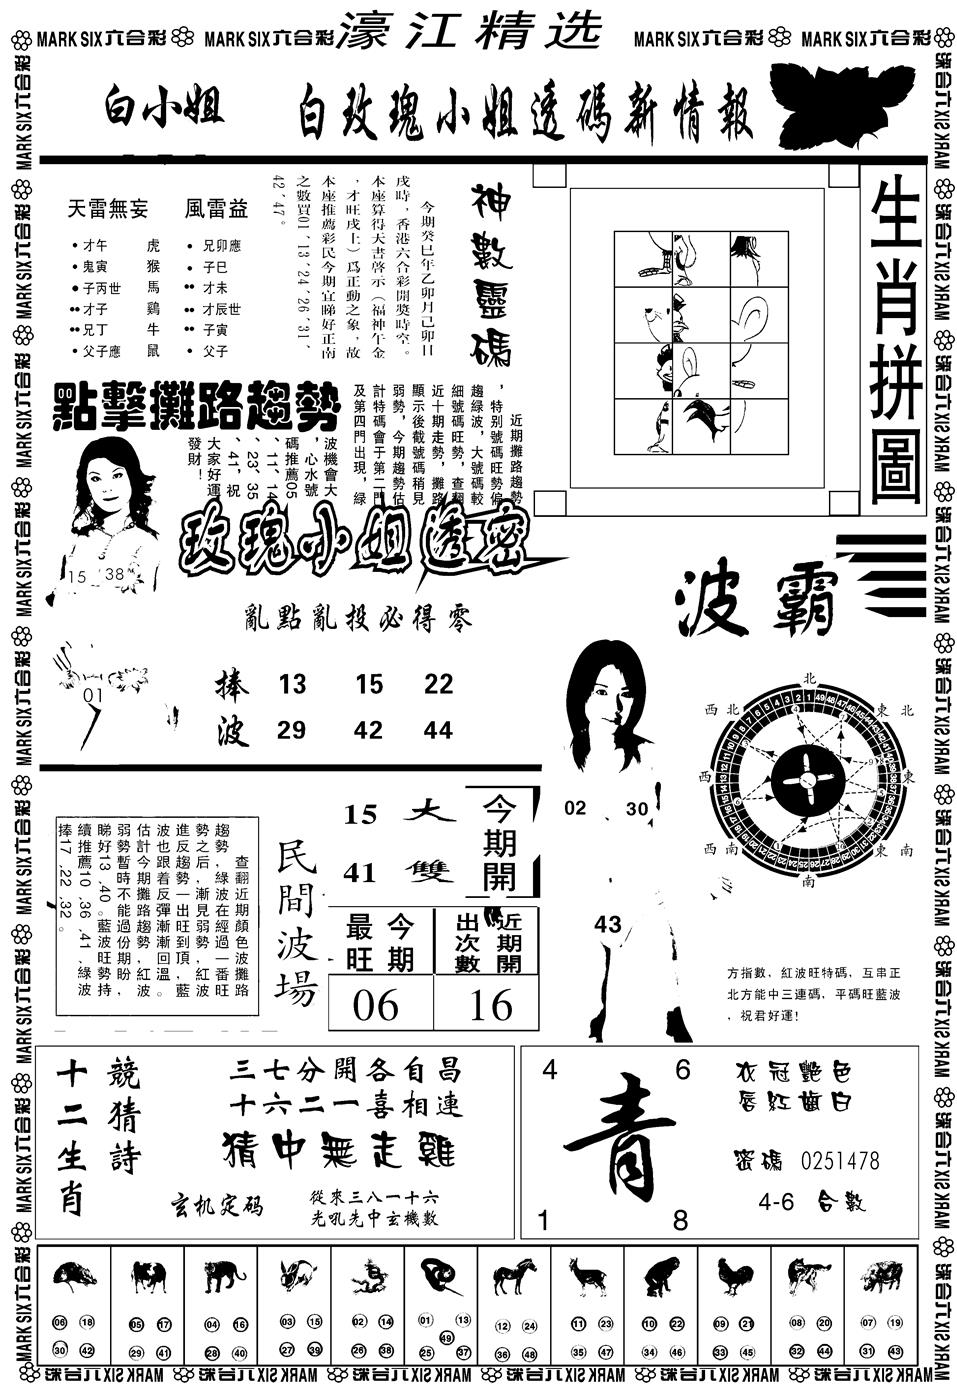 MARK SIX六合彩 MARK SIX六合彩 濠江精选 MARK SIX六合彩 MARK SIX六合彩
白小姐 白玫瑰小姐透碼新情報
天雷無妄 風雷益
•才午 虎 •兄卯應
•鬼寅 猴 •子巳
•子丙世 馬 ••才未
••才子 鷄 ••才辰世
••兄丁 牛 ••子寅
•父子應 鼠 •父子
神數靈碼
今期癸巳年乙卯月己卯日
戌時，香港六合彩開獎時空。
本座算得天書啓示（福神午金
，才旺戌上）爲正動之象，故
本座推薦彩民今期宜睇好正南
之數買01、13、24、26、31、
42、47。
生肖拼圖
點擊攤路趨勢
近期攤路趨勢
，特别號碼旺勢偏
趨綠波，大號碼較
細號碼旺勢，查翻
近十期走勢，攤路
顯示後截號碼稍見
弱勢，今期趨勢估
計特碼會于第二門
及第四門出現，綠
波機會大
，心水號
碼推薦05
、11、14
、23、35
、41，祝
大家好運
發財！
15 38
01
玫瑰小姐透密
亂點亂投必得零
捧 13 15 22
波 29 42 44
波霸
北
東北
東
東南
南
西南
西
西北
02 30
43
方指數，紅波旺特碼，互串正
北方能中三連碼，平碼旺藍波
，祝君好運！
查翻近期顏色波攤路
趨勢，綠波在經過一番旺
勢之后，漸見弱勢，紅波
進反趨勢一出旺到頂，藍
波也跟着反彈漸漸回溫。
估計今期攤路趨勢，紅波
弱勢暫時不能過份期盼，
睇好13、40。藍波旺勢持
續推薦10、36、41，綠波
捧17、22、32。
民間波場
15 大
41 雙
今期開
今期最旺
近期開出次數
06
16
十二生肖
競猜詩
三七分開各自昌
十六二一喜相連
猜中無走雞
玄机定码
從來三八一十六
光吼先中玄機數
4 6
青
1 8
衣冠艷色
唇紅齒白
密碼 0251478
4-6 合數
06 18 30 42
05 17 29 41
04 16 28 40
03 15 27 39
02 14 26 38
01 13 49 25 37
12 24 36 48
11 23 35 47
10 22 34 46
09 21 33 45
08 20 32 44
07 19 31 43